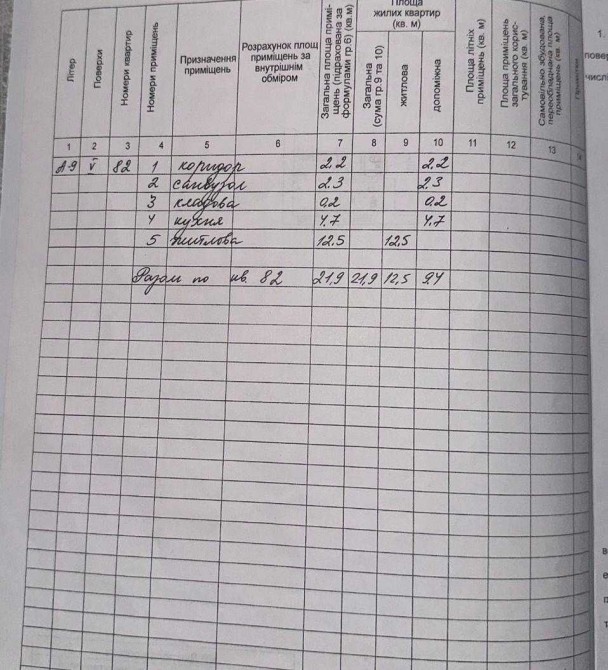 Літер
Поверхи
Номери квартир
Номери приміщень
Призначення приміщень
Розрахунок площ приміщень за внутрішнім обміром
Загальна площа приміщень (підрахована за формулами гр.6) (кв.м)
Площа жилих квартир (кв. м)
Загальна (сума гр.9 та 10)
житлова
допоміжна
Площа літніх приміщень (кв. м)
Площа приміщень загального користування (кв. м)
Самовільно збудована, переобладнана площа приміщень (кв. м)
1 2 3 4 5 6 7 8 9 10 11 12 13
А-9 V 82 1 коридор 2.2 2.2
2 санвузол 2.3 2.3
3 кладова 0,2 0,2
4 кухня 4,7 4,7
5 житлова 12,5 12,5
Разом по кв. 82 21,9 21,9 12,5 9.4
1.
повер
числі
в
е
п
т